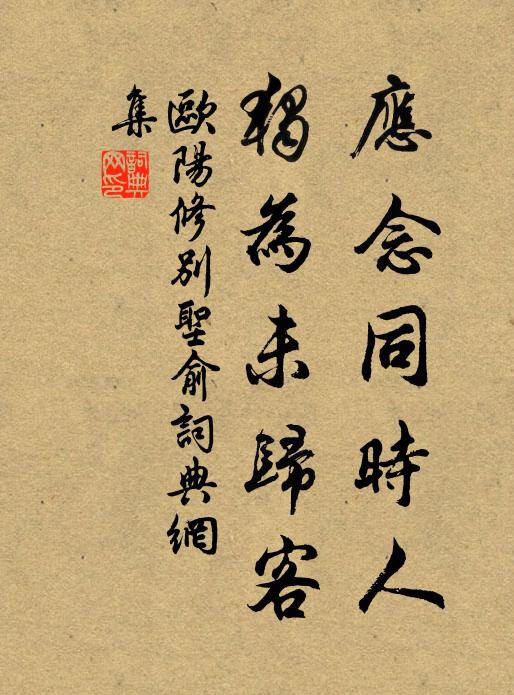 應念同時人
獨為未歸客
歐陽修別聖俞詞典網
集
詞典
网印